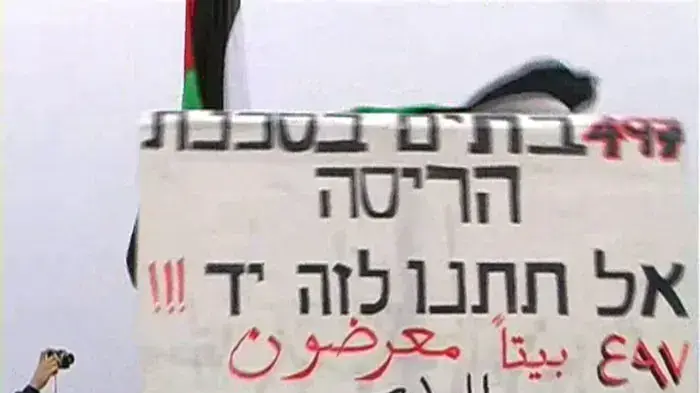 497 בתים בסכנת
הריסה
אל תתנו לזה יד !!!
٤٩٧ بيتاً معرضون